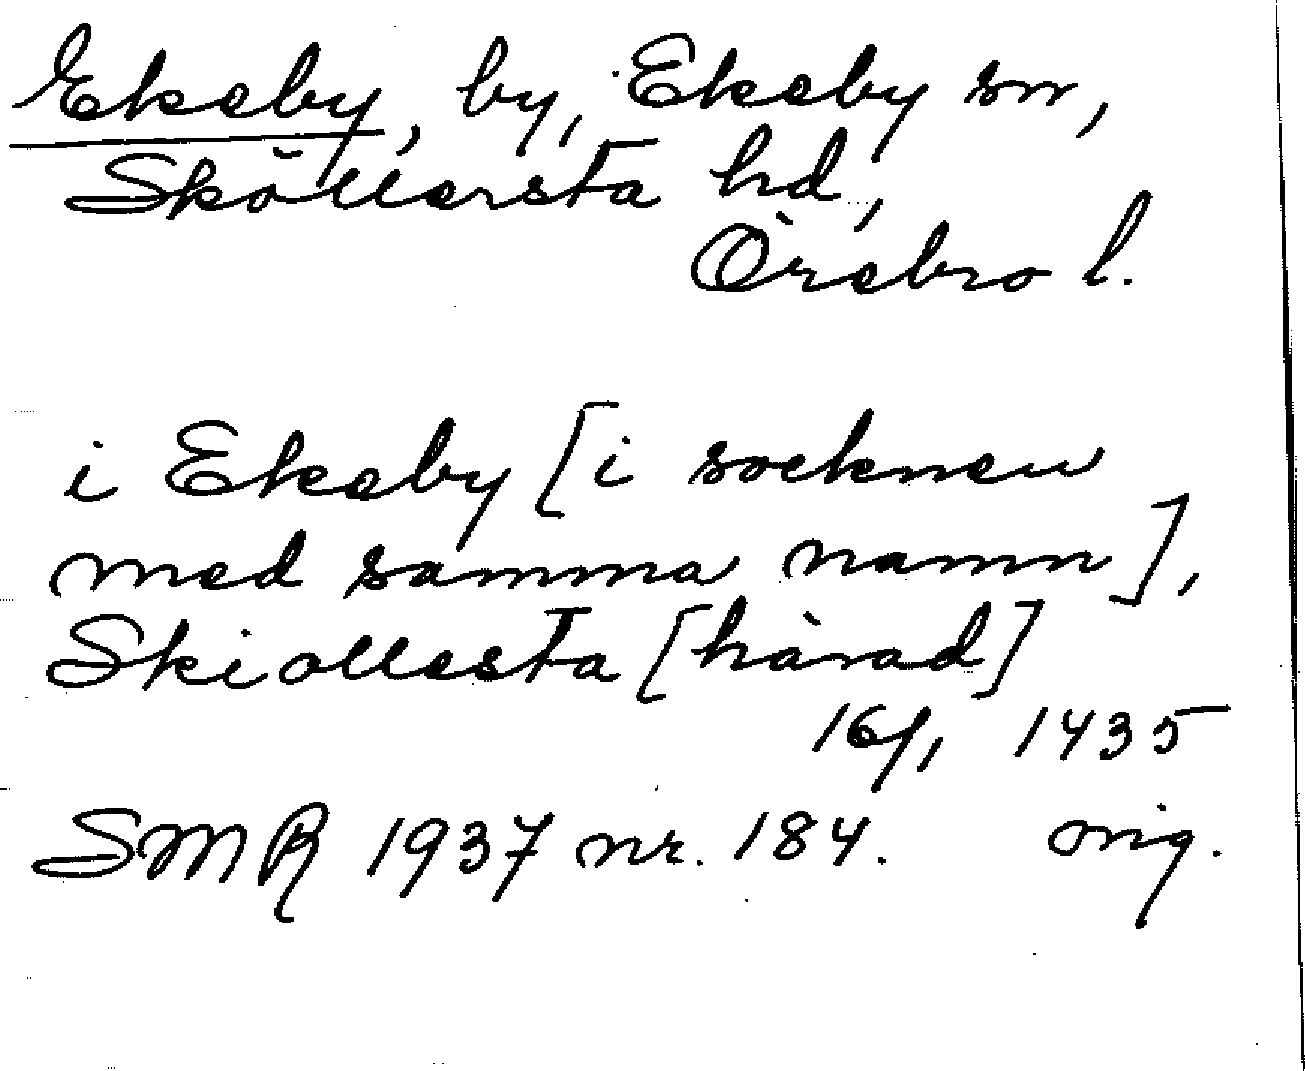 Ekeby, by, Ekeby sn,
Sköllersta hd,
Örebro l.
i Ekeby [i socknen
med samma namn],
Skiollesta [härad]
16/1 1435
SMR 1937 nr. 184. orig.